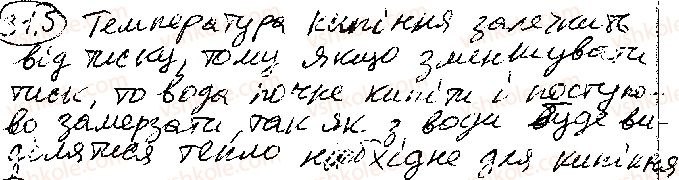 31.5 Температура кипіння залежить
від тиску, тому якщо зменшувати
тиск, то вода почне кипіти і поступо-
во замерзати, так як з води буде ви-
ділятися тепло необхідне для кипіння